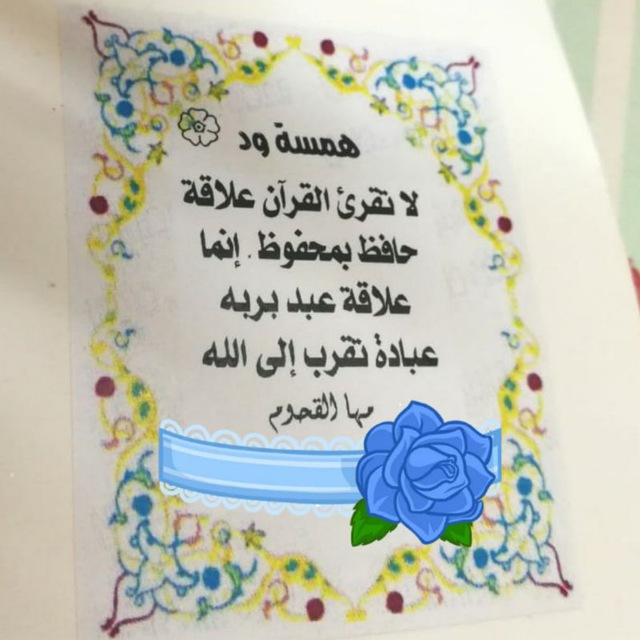 همسة ود
لا تقرئ القرآن علاقة
حافظ بمحفوظ . إنما
علاقة عبد بربه
عبادة تقرب إلى الله
مها القحوم